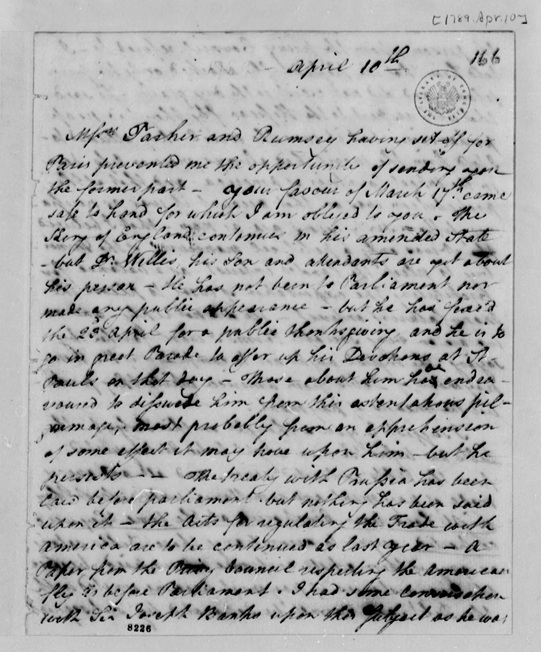 [1789. Apr. 10]
April 10th
166
Messrs Parker and Rumsey having set off for
Paris prevented me the opportunity of sending you
the former part – your favour of March 17th came
safe to hand for which I am obliged to you. The
King of England continues in his amended State
– but Dr Willis, his Son and attendants are yet about
his person – He has not been to Parliament nor
made any public appearance – but he has fixed
the 23d April for a public thanksgiving and he is to
go in great Parade to offer up his Devotions at St
Pauls on that day – Those about him have endea-
voured to dissuade him from this ostentatious pil-
grimage, most probably from an apprehension
of some effect it may have upon him – but he
persists – – The treaty with Prussia has been
laid before parliament but nothing has been said
upon it – the Acts for regulating the Trade with
America are to be continued as last year – A
Paper from the Privy Council respecting the american
fly is before Parliament. I had some conversation
with Sir Joseph Banks upon this subject as he was
8226